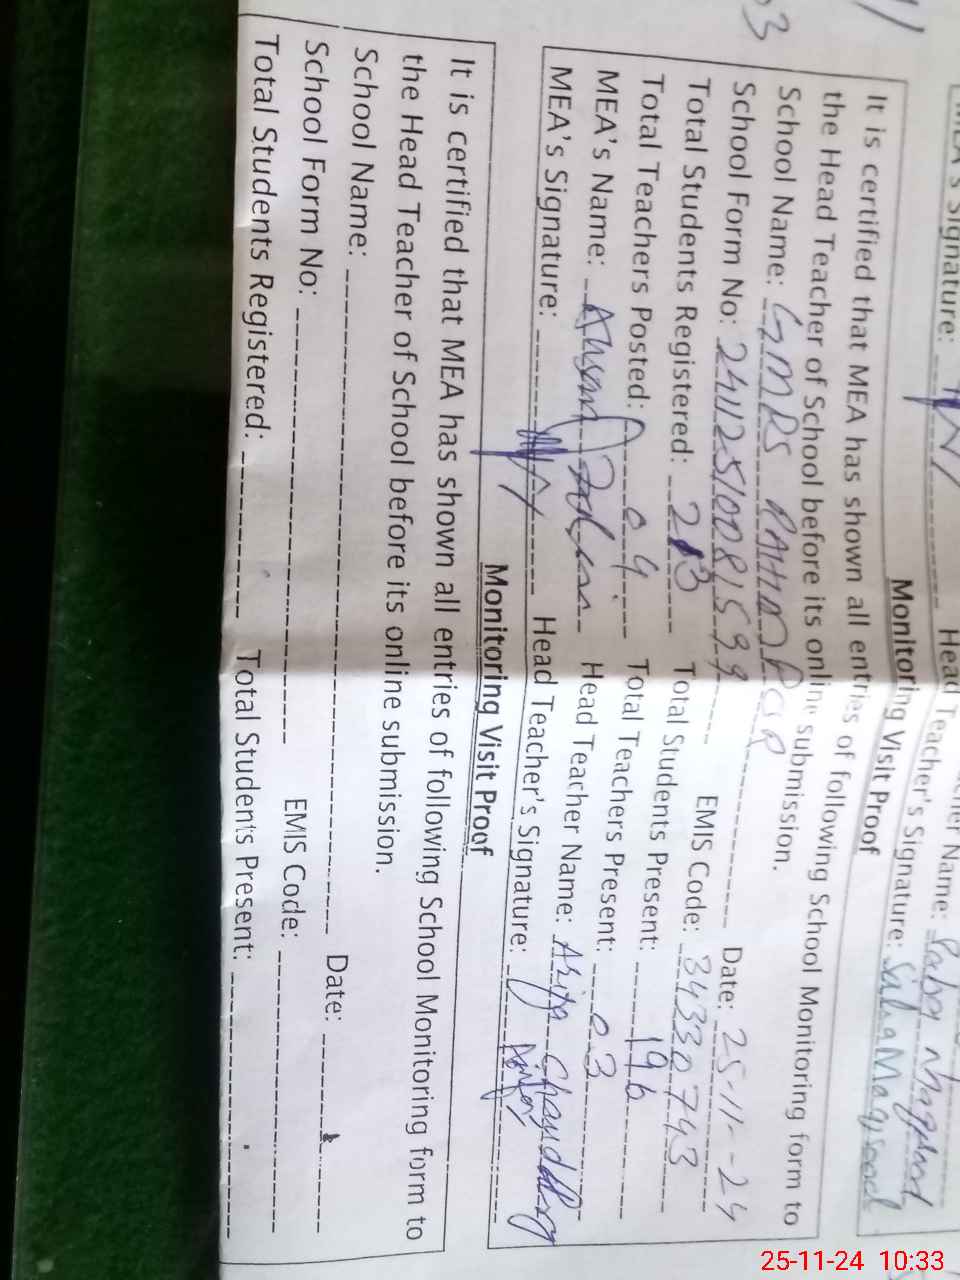 MEA's Signature: Head Teacher's Signature: Saba Maqsood
Monitoring Visit Proof
It is certified that MEA has shown all entries of following School Monitoring form to
the Head Teacher of School before its online submission.
School Name: GMRS Date: 25-11-24
School Form No: EMIS Code: 34330743
Total Students Registered: 213 Total Students Present: 196
Total Teachers Posted: 04 Total Teachers Present: 03
MEA's Name: Head Teacher Name: Chaudhry
MEA's Signature: Head Teacher's Signature:
Monitoring Visit Proof
It is certified that MEA has shown all entries of following School Monitoring form to
the Head Teacher of School before its online submission.
School Name: Date:
School Form No: EMIS Code:
Total Students Registered: Total Students Present:
25-11-24 10:33